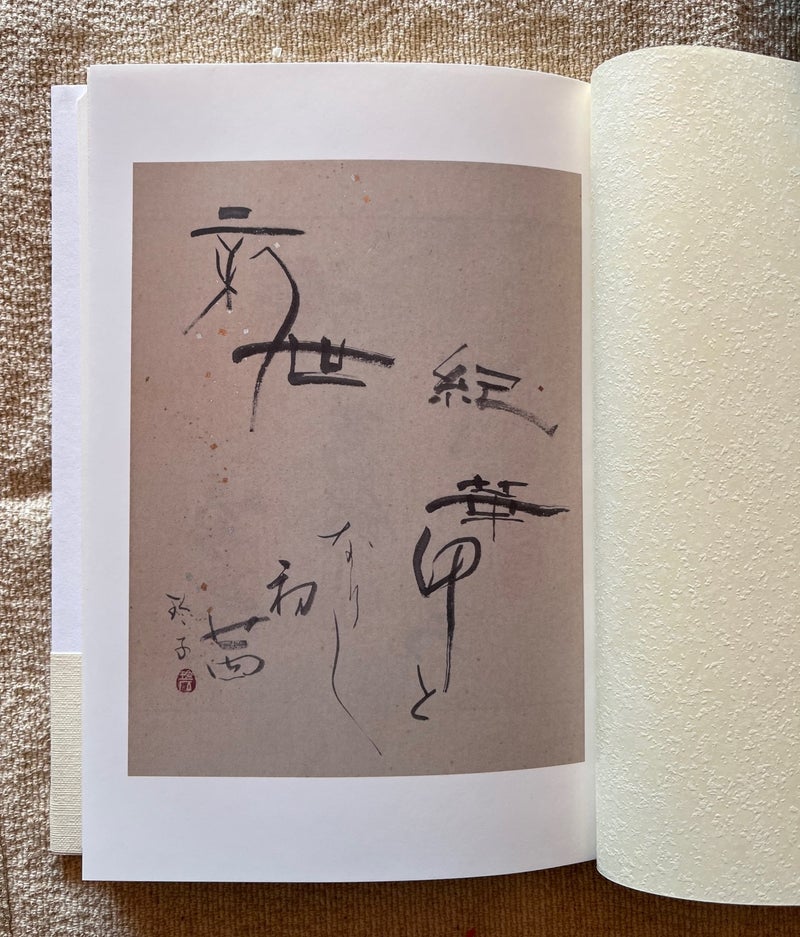 新世
紀
華甲と
なりし
初茜
玲子